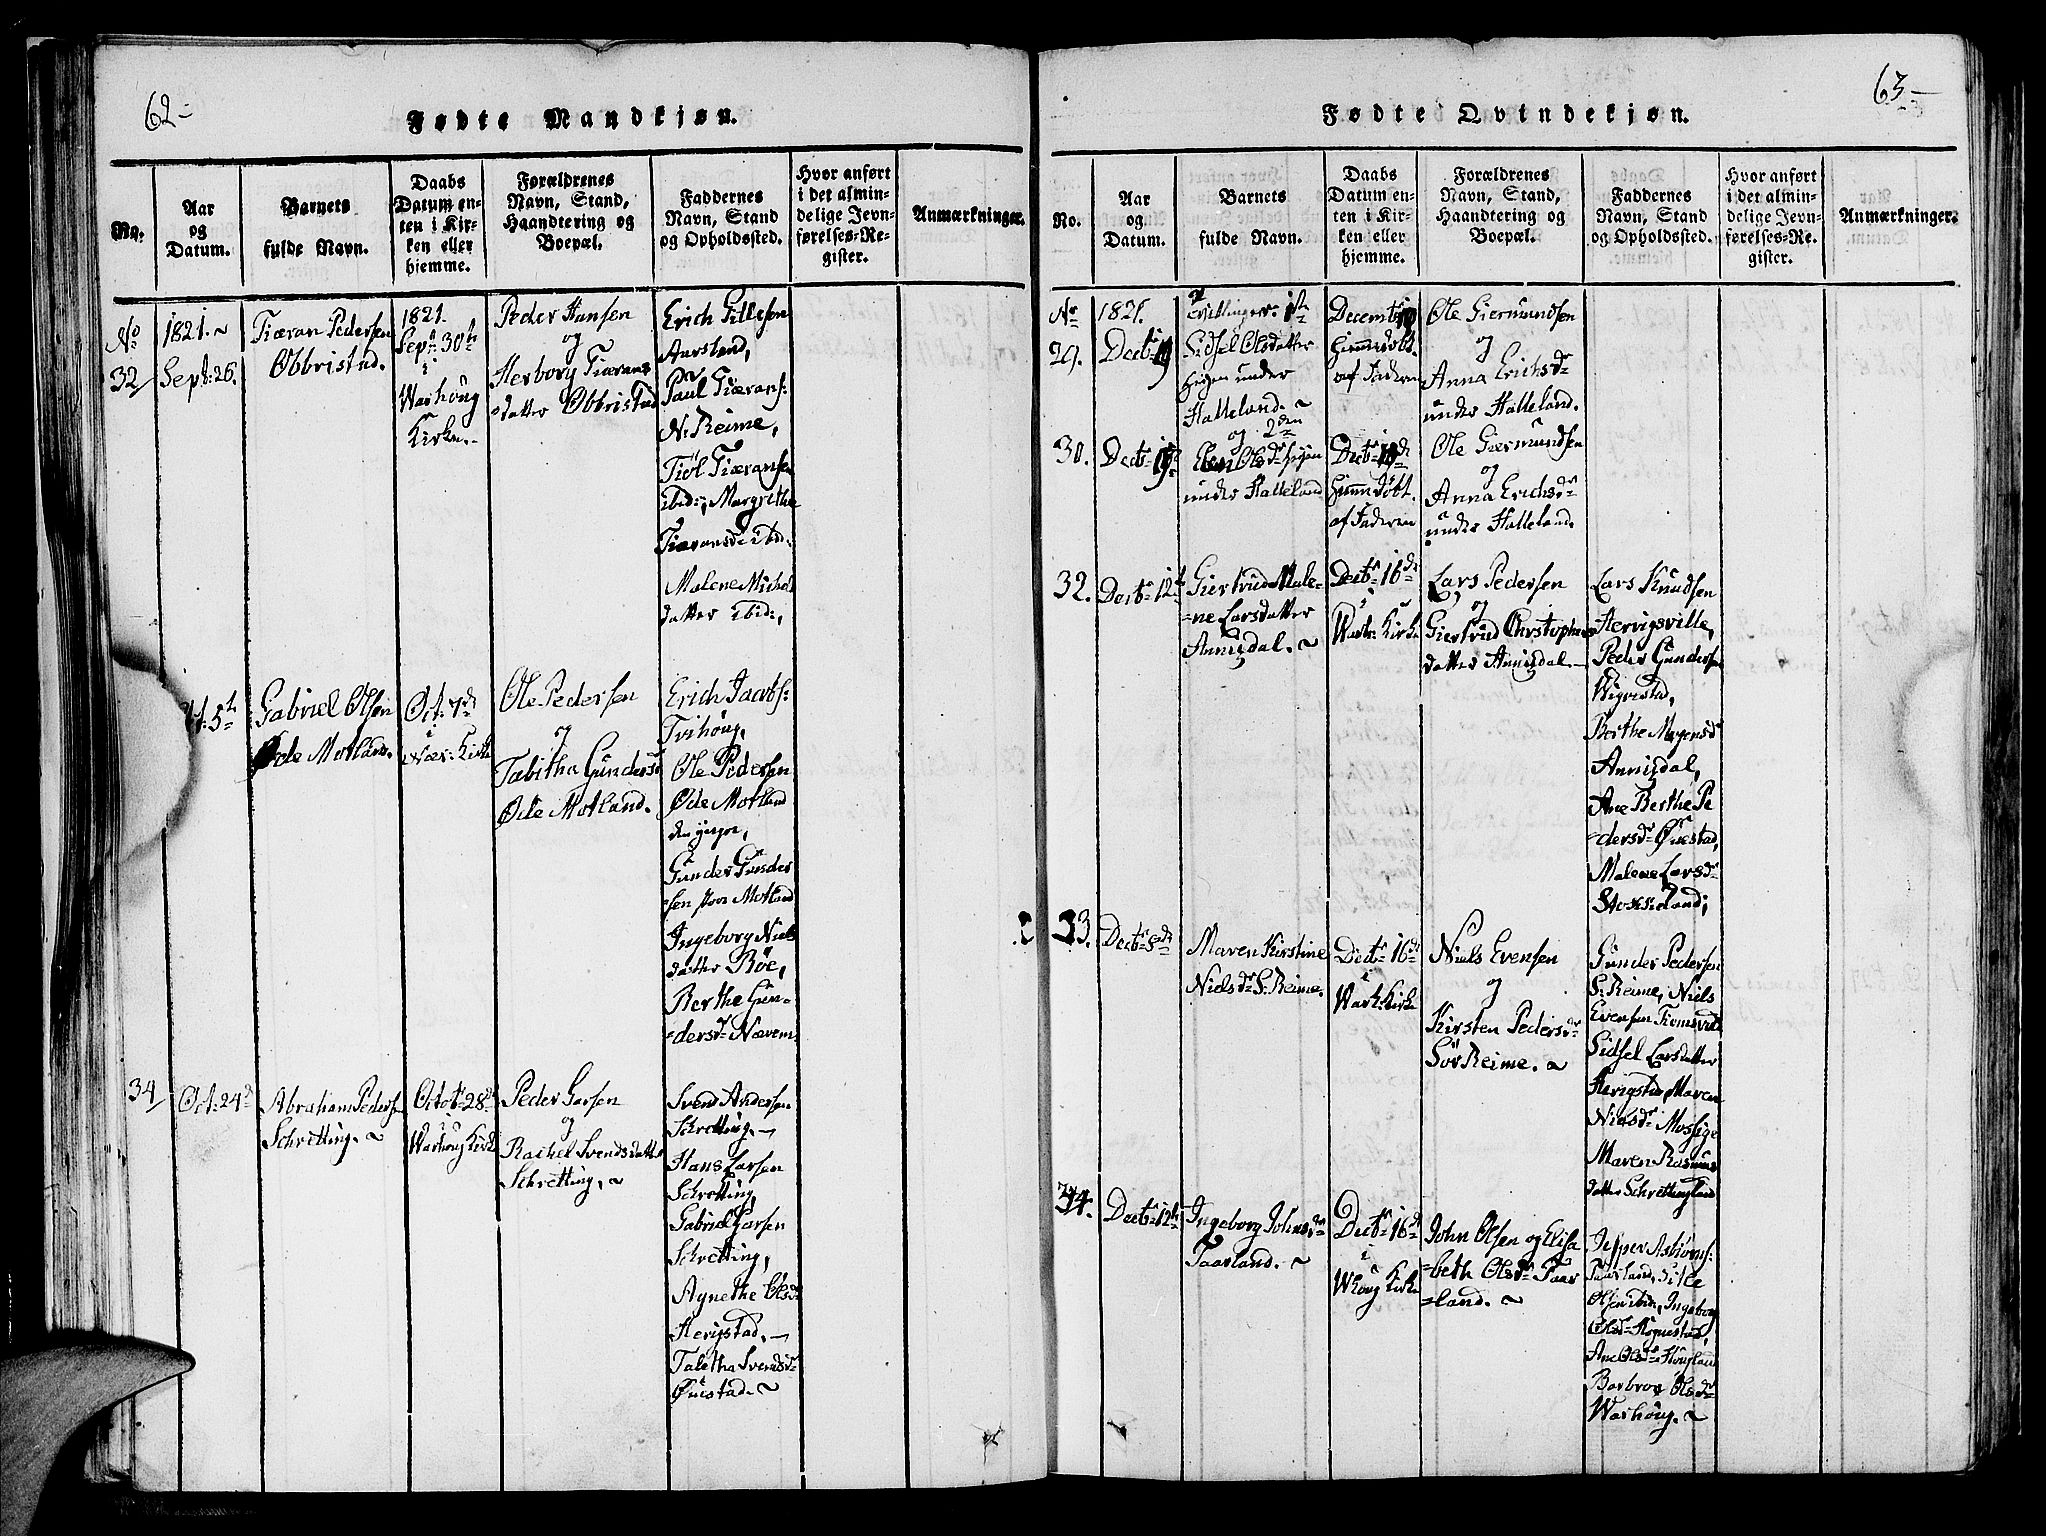 62
Fødte Mandkjøn.
No.
Aar
og
Datum.
Barnets
fulde Navn.
Daabs
Datum en-
ten i Kir-
ken eller
hjemme.
Forældrenes
Navn, Stand,
Haandtering og
Boepæl.
Faddernes
Navn, Stand
og Opholdssted.
Hvor anført
i det almin-
delige Jevn-
førelses-Re-
gister.
Anmærkninger.
No
32
1821.
Sept: 26.
Tiæran Pedersen
Obbristad.
1821.
Sept: 30te
i
Warhoug
Kirke.
Peder Hansen
og
Herborg Tiærans
datter Obbristad
Erich Tillesen
Aarsland,
Paul Tiærans:
N: Reime,
Tiøl Tiæransen
ibid:, Margrithe
Tiæransdr ibid:
Malene Michels
datter ibid:,
5te
Gabriel Olsen
Øde Motland.
Oct: 7de
i
Nær: Kirke
Ole Pedersen
og
Tabitha Gundersdr
Øde Motland.
Erich Jacobs:
Tvihoug,
Ole Pedersen
Øde Motland
den yngre,
Gunder Gunder
sen store Motland
Ingeborg Niels
datter Bøe,
Berthe Gun-
dersdr Nærem
34
Oct: 24de
Abraham Peders
Schretting.
Octob: 28de
i
Warhoug Kirke
Peder Garsen
og
Rachel Svendsdatter
Schretting.
Svend Andersen
Schretting,
Hans Larsen
Schretting,
Gabriel Garsen
Schretting,
Agnethe Olsdr
Herigstad,
Taletha Svendsdr
Øuestad.
63
Fødte Qvindekjøn.
No.
Aar
og
Datum.
Barnets
fulde Navn.
Daabs
Datum en-
ten i Kir-
ken eller
hjemme.
Forældrenes
Navn, Stand,
Haandtering og
Boepæl.
Faddernes
Navn, Stand
og Opholdssted.
Hvor anført
i det almin-
delige Jevn-
førelses-Re-
gister.
Anmærkninger.
No
29.
1821.
Decbr 19
Tvillinger 1ste
Sidsel Olsdatter
Høgen under
Halleland.
og 2den
Decembr 19
Hiemmedøbt
af Faderen
Ole Giermundsen
og
Anna Erichsdr
under Halleland.
30.
Decbr 19
Olsdr Høgen
under Halleland
Decbr 19de
Hiemmedøbt
af Faderen
Ole Giermundsen
og
Anna Erichsdr
under Halleland.
32.
Decbr 12te
Giertrud Male-
ne Larsdatter
Annisdal.
Decbr 16de
i
Warh: Kirke
Lars Pedersen
og
Giertrud Christophers
datter Annisdal.
Lars Knudsen
Hervigsville,
Peder Gundersen
Wigrestad,
Berthe Mogensdr
Annisdal,
Ane Berthe Pe
dersdr Øuestad,
Malene Larsdr
Stokkeland;
33.
Decbr 5de
Maren Kirstine
Nielsdr S: Reime.
Decbr 16de
i
Warh: Kirke
Niels Evensen
og
Kirsten Pedersdr
Sør Reime.
Gunder Pedersen
S: Reime, Niels
Evensen
Sidsel Larsdatter
Herigstad, Maren
Nielsdr Mossige
Maren Rasmus
datter Schrettingland
34.
Decbr 12te
Ingeborg Johnsdr
Taarland.
Decbr 16de
i
Whoug Kirke
John Olsen og Elisa
beth Olsdr Taar
land.
Jesper Asbiørns:
Taarland, Sille
Olsen ibid:, Ingeborg
Olsdr Høguestad,
Ane Olsdr Hougland
Barbroe Olsdr
Warhoug.